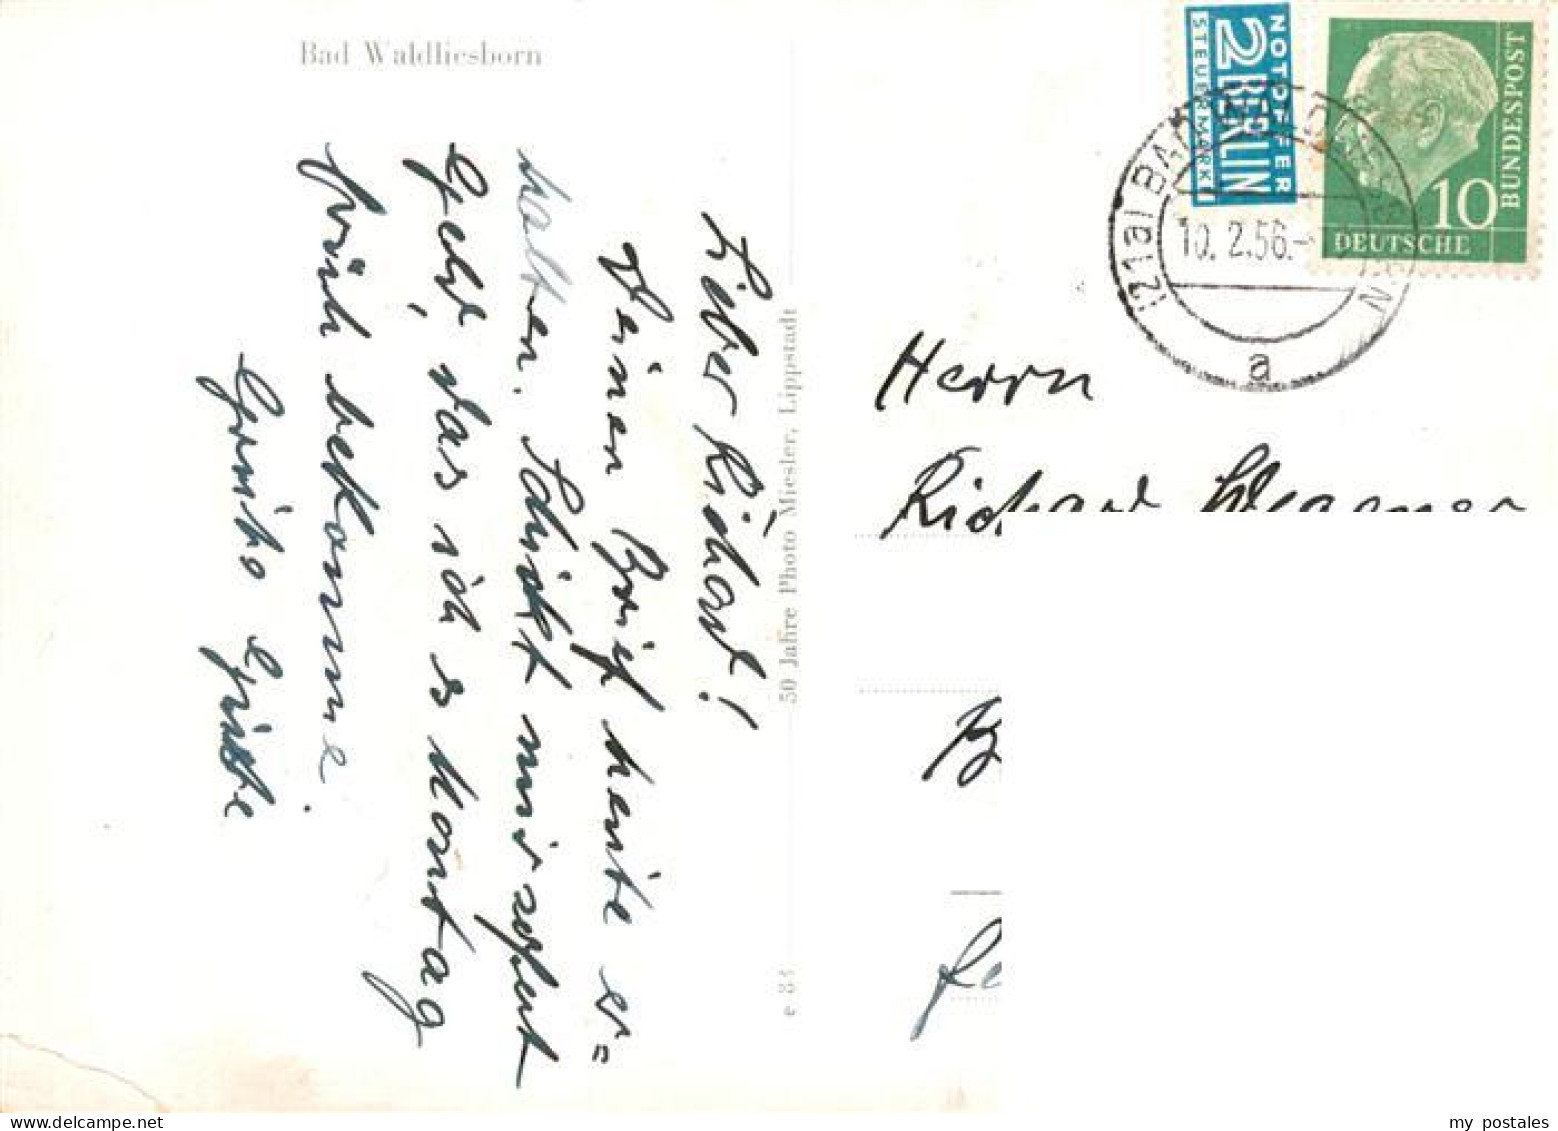 Bad Waldliesborn
Lieber Richard!
Deinen Brief heute er=
halten. Schickt mir sofort
Geld, das ich es Montag
früh bekomme.
Gruß
50 Jahre Photo Miesler, Lippstadt
e 83
NOTOPFER
2 BERLIN
STEUERMARKE
DEUTSCHE
BUNDESPOST
10
(21a) BAD WALDLIESBORN
10. 2.56.-
a
Herrn
Richard
my postales